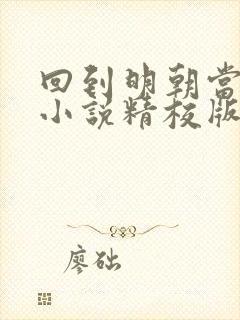 回到明朝当
小说精校版
廖础